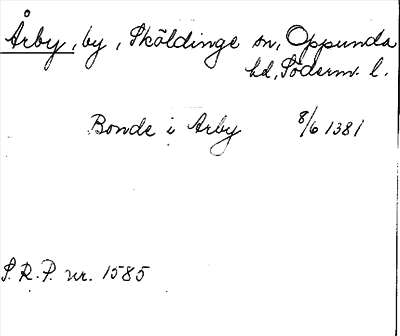 Årby, by, Sköldinge sn, Oppunda
hd, Söderm. l.
Bonde i Arby 8/6 1381
S.R.P. nr. 1585